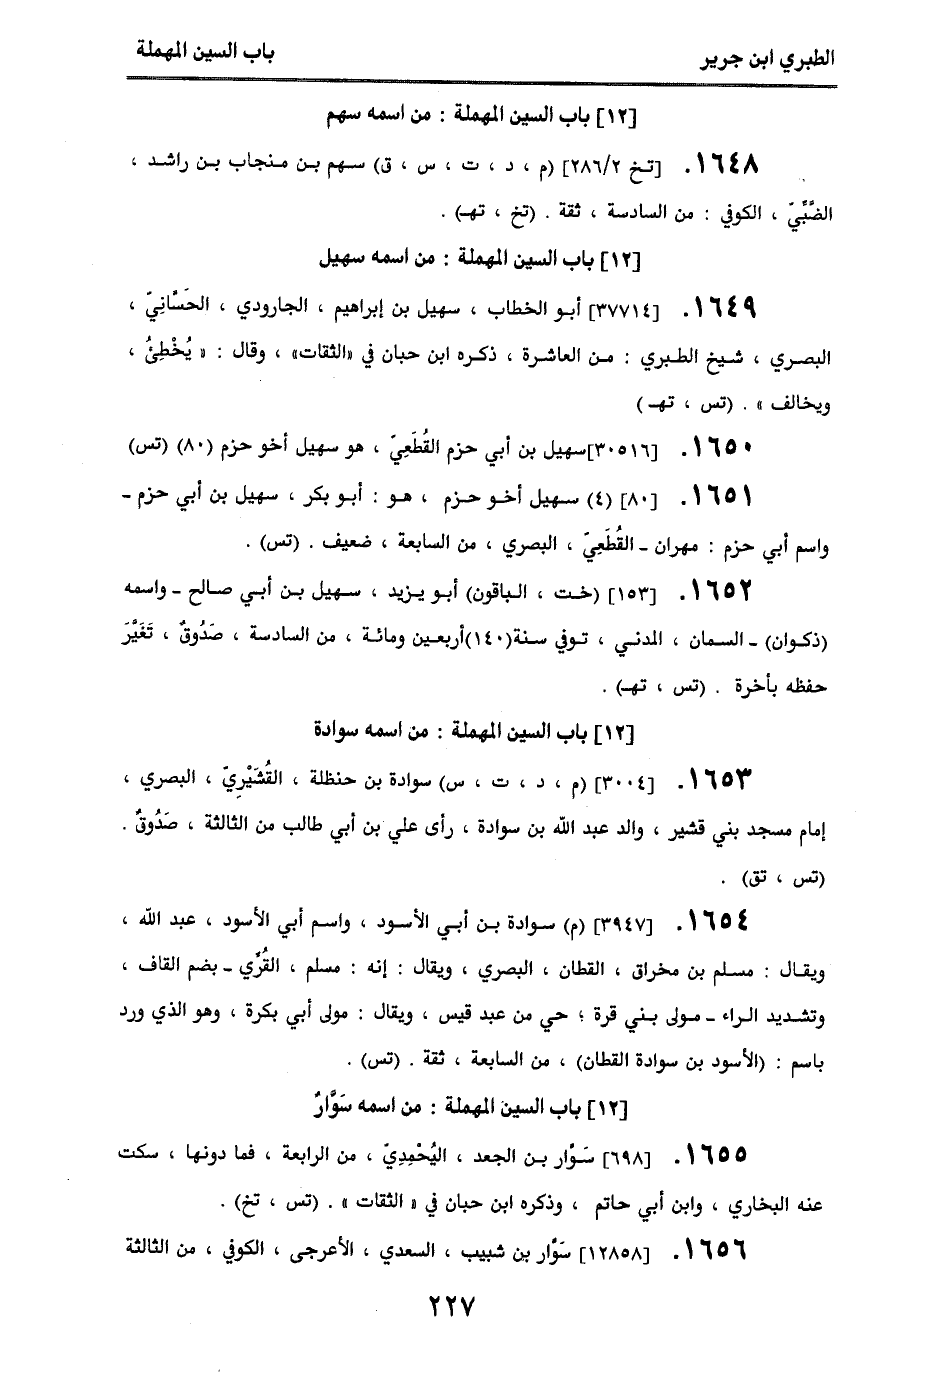 الطبري ابن جرير
باب السين المهملة
[١٢] باب السين المهملة : من اسمه سهم
١٦٤٨. [تخ ٢٨٦/٢] (م ، د ، ت ، س ، ق) سهم بن منجاب بن راشد ،
الضَّبِّيّ ، الكوفي : من السادسة ، ثقة . (تخ ، تهـ) .
[١٢] باب السين المهملة : من اسمه سهيل
١٦٤٩. [٣٧٧١٤] أبو الخطاب ، سهيل بن إبراهيم ، الجارودي ، الحَسَّانِيّ ،
البصري ، شيخ الطبري : من العاشرة ، ذكره ابن حبان في «الثقات» ، وقال : « يُخْطِئُ ،
ويخالف » . (تس ، تهـ)
١٦٥٠. [٣٠٥١٦]سهيل بن أبي حزم القُطَعِيّ ، هو سهيل أخو حزم (٨٠) (تس)
١٦٥١. [٨٠] (٤) سهيل أخو حزم ، هو : أبو بكر ، سهيل بن أبي حزم –
واسم أبي حزم : مهران – القُطَعِيّ ، البصري ، من السابعة ، ضعيف . (تس) .
١٦٥٢. [١٥٣] (خت ، الباقون) أبو يزيد ، سهيل بن أبي صالح – واسمه
(ذكوان) – السمان ، المدني ، توفي سنة(١٤٠)أربعين ومائة ، من السادسة ، صَدُوقٌ ، تَغَيَّرَ
حفظه بأخرة . (تس ، تهـ) .
[١٢] باب السين المهملة : من اسمه سوادة
١٦٥٣. [٣٠٠٤] (م ، د ، ت ، س) سوادة بن حنظلة ، القُشَيْرِيّ ، البصري ،
إمام مسجد بني قشير ، والد عبد الله بن سوادة ، رأى علي بن أبي طالب من الثالثة ، صَدُوقٌ .
(تس ، تق) .
١٦٥٤. [٣٩٤٧] (م) سوادة بن أبي الأسود ، واسم أبي الأسود ، عبد الله ،
ويقال : مسلم بن مخراق ، القطان ، البصري ، ويقال : إنه : مسلم ، القُرِّي – بضم القاف ،
وتشديد الراء – مولى بني قرة ؛ حي من عبد قيس ، ويقال : مولى أبي بكرة ، وهو الذي ورد
باسم : (الأسود بن سوادة القطان) ، من السابعة ، ثقة . (تس) .
[١٢] باب السين المهملة : من اسمه سَوَّارٌ
١٦٥٥. [٦٩٨] سَوَّار بن الجعد ، اليُحْمِدِيّ ، من الرابعة ، فما دونها ، سكت
عنه البخاري ، وابن أبي حاتم ، وذكره ابن حبان في « الثقات » . (تس ، تخ) .
١٦٥٦. [١٢٨٥٨] سَوَّار بن شبيب ، السعدي ، الأعرجى ، الكوفي ، من الثالثة
٢٢٧